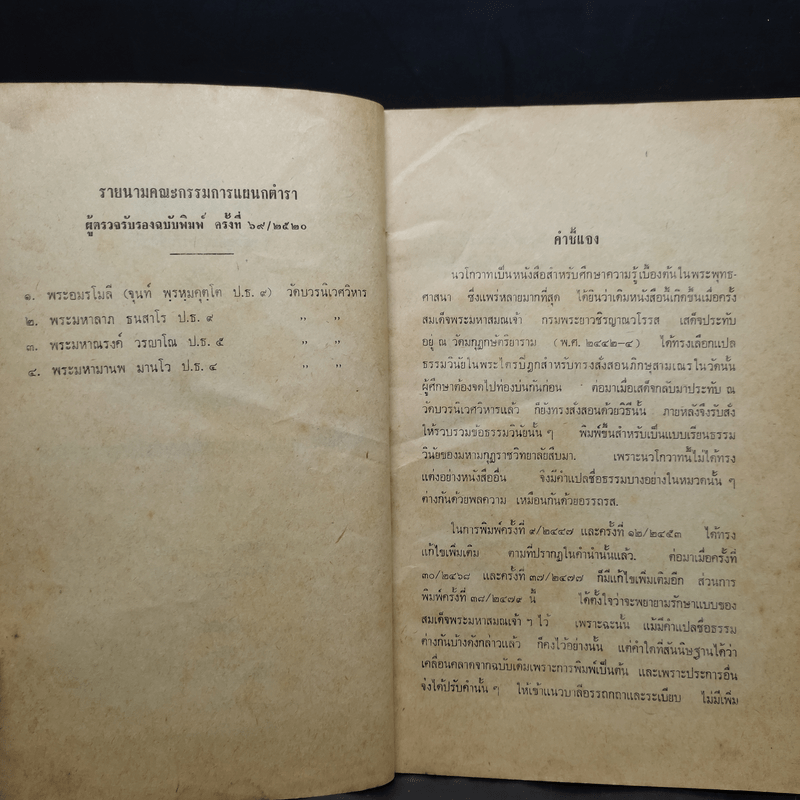 รายนามคณะกรรมการแผนกตำรา
ผู้ตรวจรับรองฉบับพิมพ์ ครั้งที่ ๖๙/๒๕๒๐
๑. พระอมรโมลี (จุนท์ พฺรหฺมคุตฺโต ป.ธ. ๙) วัดบวรนิเวศวิหาร
๒. พระมหาลาภ ธนสาโร ป.ธ. ๙ ,, ,,
๓. พระมหาณรงค์ วรญาโณ ป.ธ. ๕ ,, ,,
๔. พระมหามานพ มานโว ป.ธ. ๔ ,, ,,
คำชี้แจง
นวโกวาทเป็นหนังสือสำหรับศึกษาความรู้เบื้องต้นในพระพุทธ-
ศาสนา ซึ่งแพร่หลายมากที่สุด ได้ยินว่าเดิมหนังสือนี้เกิดขึ้นเมื่อครั้ง
สมเด็จพระมหาสมณเจ้า กรมพระยาวชิรญาณวโรรส เสด็จประทับ
อยู่ ณ วัดมกุฏกษัตริยาราม (พ.ศ. ๒๔๔๒-๔) ได้ทรงเลือกแปล
ธรรมวินัยในพระไตรปิฎกสำหรับทรงสั่งสอนภิกษุสามเณรในวัดนั้น
ผู้ศึกษาต้องจดไปท่องบ่นกันก่อน ต่อมาเมื่อเสด็จกลับมาประทับ ณ
วัดบวรนิเวศวิหารแล้ว ก็ยังทรงสั่งสอนด้วยวิธีนั้น ภายหลังจึงรับสั่ง
ให้รวบรวมข้อธรรมวินัยนั้น ๆ พิมพ์ขึ้นสำหรับเป็นแบบเรียนธรรม
วินัยของมหามกุฏราชวิทยาลัยสืบมา. เพราะนวโกวาทนี้ไม่ได้ทรง
แต่งอย่างหนังสืออื่น จึงมีคำแปลชื่อธรรมบางอย่างในหมวดนั้น ๆ
ต่างกันด้วยพลความ เหมือนกันด้วยอรรถรส.
ในการพิมพ์ครั้งที่ ๙/๒๔๔๗ และครั้งที่ ๑๒/๒๔๕๓ ได้ทรง
แก้ไขเพิ่มเติม ตามที่ปรากฏในคำนำนั้นแล้ว. ต่อมาเมื่อครั้งที่
๓๐/๒๔๖๘ และครั้งที่ ๓๗/๒๔๗๗ ก็มีแก้ไขเพิ่มเติมอีก ส่วนการ
พิมพ์ครั้งที่ ๓๘/๒๔๗๙ นี้ ได้ตั้งใจว่าจะพยายามรักษาแบบของ
สมเด็จพระมหาสมณเจ้า ฯ ไว้ เพราะฉะนั้น แม้มีคำแปลชื่อธรรม
ต่างกันบ้างดังกล่าวแล้ว ก็คงไว้อย่างนั้น แต่คำใดที่สันนิษฐานได้ว่า
เคลื่อนคลาดจากฉบับเดิมเพราะการพิมพ์เป็นต้น และเพราะประการอื่น
จึงได้ปรับคำนั้น ๆ ให้เข้าแนวบาลีอรรถกถาและระเบียบ ไม่มีเพิ่ม